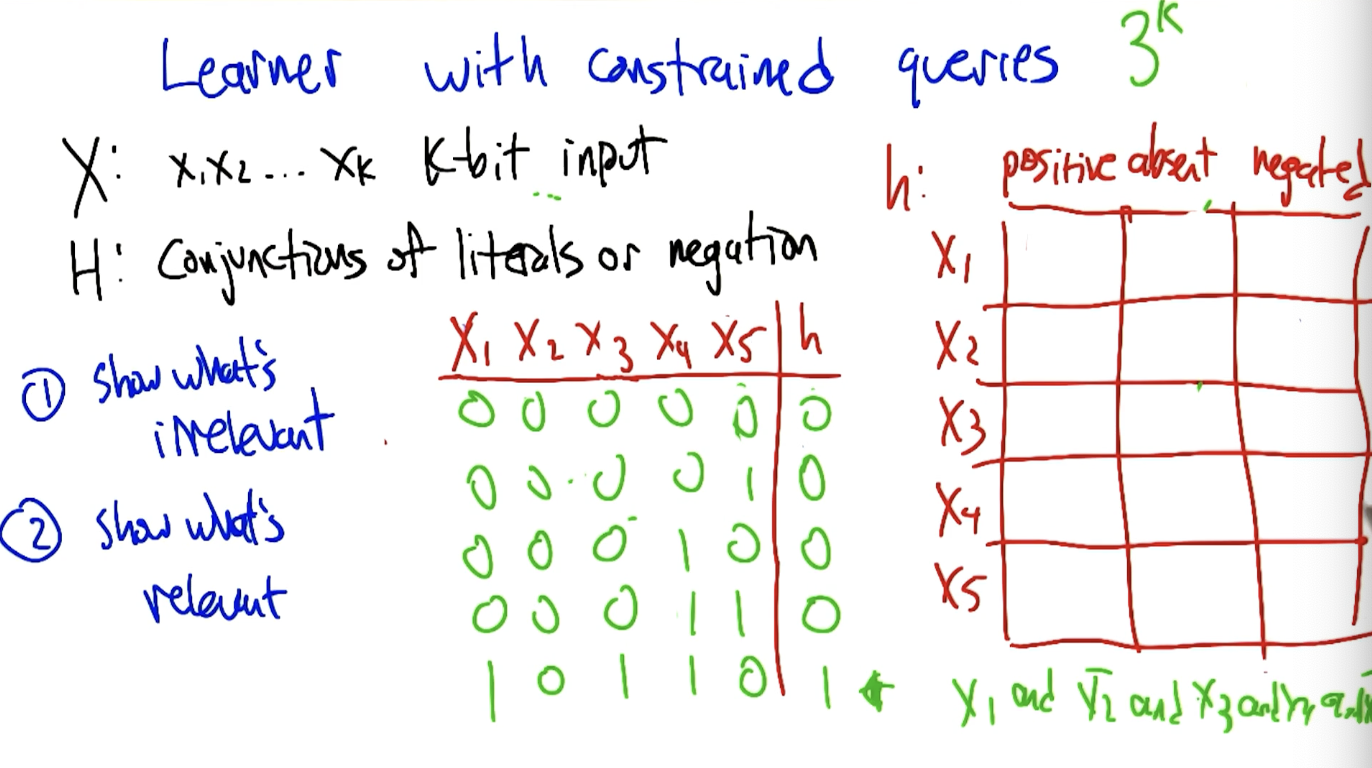 Learner with constrained queries 3^K
X: X1X2... XK K-bit input
H: Conjunctions of literals or negation
① show what's
irrelevant
② show what's
relevant
X1 X2 X3 X4 X5 h
0 0 0 0 0 0
0 0 0 0 1 0
0 0 0 1 0 0
0 0 0 1 1 0
1 0 1 1 0 1
h: positive absent negated
X1
X2
X3
X4
X5
X1 and X̅2 and X3 and X4 and